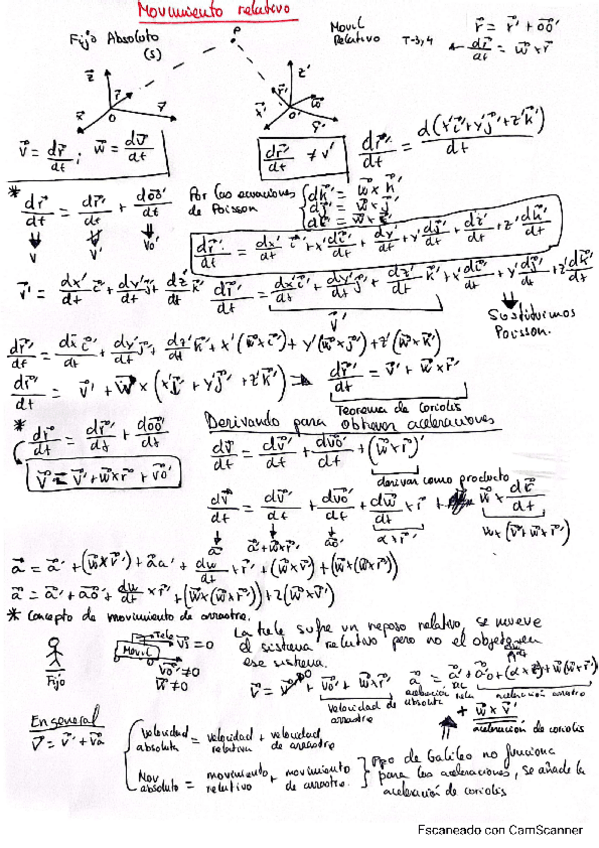 Movimiento relativo
Fijo Absoluto
(S)
P
Movil
Relativo
T-3,4
r⃗ = r⃗' + oo⃗'
dr⃗/dt = w⃗ x r⃗
z⃗
r⃗
O
z'
r⃗'
w⃗
O'
v⃗ = dr⃗/dt ; w⃗ = dv⃗/dt
dr⃗'/dt ≠ v⃗'
dr⃗'/dt = d(x'i⃗'+y'j⃗'+z'k⃗')/dt
* dr⃗/dt = dr⃗'/dt + doo⃗'/dt
v v' vo'
Por las ecuaciones
de Poisson
dr⃗'/dt = dx'/dt i⃗' + x' di⃗'/dt + dy'/dt + y' dj⃗'/dt + dz'/dt + z' dk⃗'/dt
v⃗' = dx'/dt i⃗' + dy'/dt j⃗' + dz'/dt k⃗'
dr⃗'/dt = dx'/dt i⃗' + dy'/dt j⃗' + dz'/dt k⃗' + x' di⃗'/dt + y' dj⃗'/dt + z' dk⃗'/dt
v⃗'
Sustituimos
Poisson.
dr⃗'/dt = dx/dt i⃗' + dy'/dt j⃗' + dz'/dt k⃗' + x'(w⃗ x i⃗') + y'(w⃗ x j⃗') + z'(w⃗ x k⃗')
dr⃗'/dt = v⃗' + w⃗ x (x'i⃗' + y'j⃗' + z'k⃗') ⇒ dr⃗'/dt = v⃗' + w⃗ x r⃗'
Teorema de coriolis
* dr⃗/dt = dr⃗'/dt + doo⃗'/dt
v⃗ = v⃗' + w⃗ x r⃗' + vo⃗'
Derivando para obtener aceleraciones
dv⃗/dt = dv⃗'/dt + dvo⃗'/dt + (w⃗ x r⃗')'
derivar como producto
dv⃗/dt = dv⃗'/dt + dvo⃗'/dt + dw⃗/dt x r⃗' + w⃗ x dr⃗/dt
a⃗ a⃗'+w⃗xr⃗' ao⃗' α x r⃗' w x (v⃗' + w⃗ x r⃗')
a⃗ = a⃗' + (w⃗ x v⃗') + ao⃗' + dw/dt x r⃗' + (w⃗ x v⃗') + (w⃗ x (w⃗ x r⃗'))
a⃗ = a⃗' + ao⃗' + dw/dt x r⃗' + (w⃗ x (w⃗ x r⃗')) + 2(w⃗ x v⃗')
* Concepto de movimiento de arrastre.
Fijo
Tele
Movil
La tele sufre un reposo relativo, se mueve
el sistema relativo pero no el objeto en
ese sistema.
v⃗ = v⃗' + vo⃗' + w⃗ x r⃗'
velocidad de
arrastre
a⃗ = a⃗' + a⃗'o + (α x r⃗) + w⃗(w⃗ x r⃗')
aceleración
absoluta
aceleración arrastre
+ w⃗ x v⃗'
aceleración de coriolis
En general
v⃗ = v⃗' + va⃗
velocidad absoluta = velocidad relativa + velocidad de arrastre
Mov absoluto = movimiento relativo + movimiento de arrastre.
Ppo de Galileo no funciona
para las aceleraciones, se añade la
aceleración de coriolis
Escaneado con CamScanner